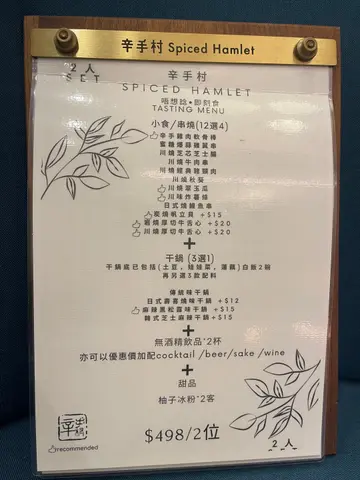 辛手村 Spiced Hamlet
2 人
SET
辛手村
SPICED HAMLET
唔想諗•即刻食
TASTING MENU
小食/串燒(12選4)
辛手雞肉軟骨棒
蜜糖爆蒜雞翼串
川燒芝芯芝士腸
川燒牛肉串
川燒經典雞髀肉
川燒秋葵
川燒翠玉瓜
川味炸蔓條
日式燒鰻魚串
炭燒帆立貝 +$15
蔥燒厚切牛舌心 +$20
川燒厚切牛舌心 +$20
+
干鍋 (3選1)
干鍋底已包括(土豆, 娃娃菜, 蓮藕)白飯2碗
再另選3款配料
傳統味干鍋
日式壽喜燒味干鍋 +$12
麻辣黑松露味干鍋 +$15
韓式芝士麻辣干鍋+$15
+
無酒精飲品*2杯
亦可以優惠價加配cocktail /beer/sake /wine
+
甜品
柚子冰粉*2客
$498/2位
recommended
2 人